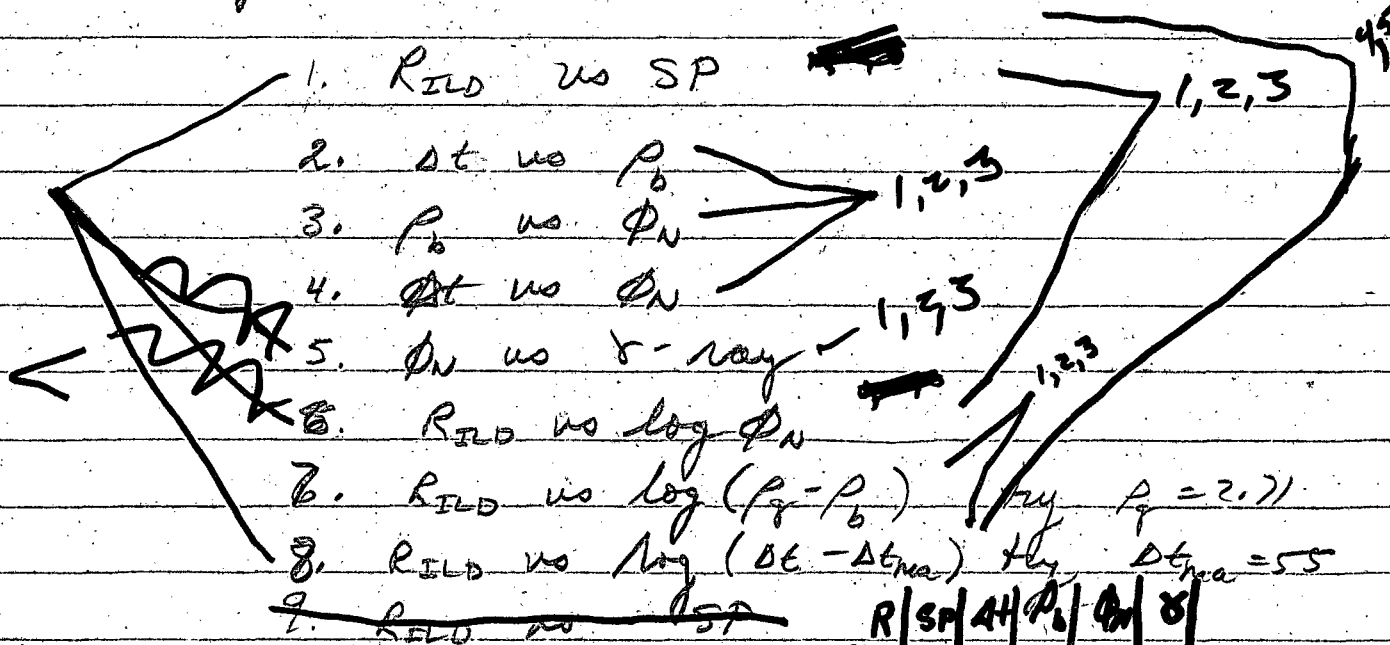 1. R_ILD vs SP 1, 2, 3
2. Δt vs ρ_b
3. ρ_b vs ϕ_N 1, 2, 3
4. Δt vs ϕ_N
5. ϕ_N vs γ-ray 1, 2, 3
6. R_ILD vs log ϕ_N 1, 2, 3
7. R_ILD vs log (ρ_g - ρ_b) try ρ_g = 2.71
8. R_ILD vs log (Δt - Δt_ma) try Δt_ma = 55
9. R_ILD vs SP
R | SP | Δt | ρ_b | ϕ_N | γ |